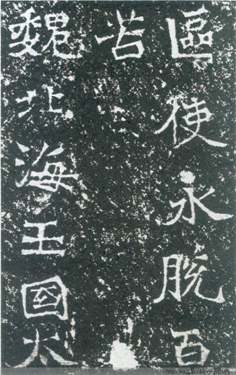 區使永脫百
苦
魏北海王國太